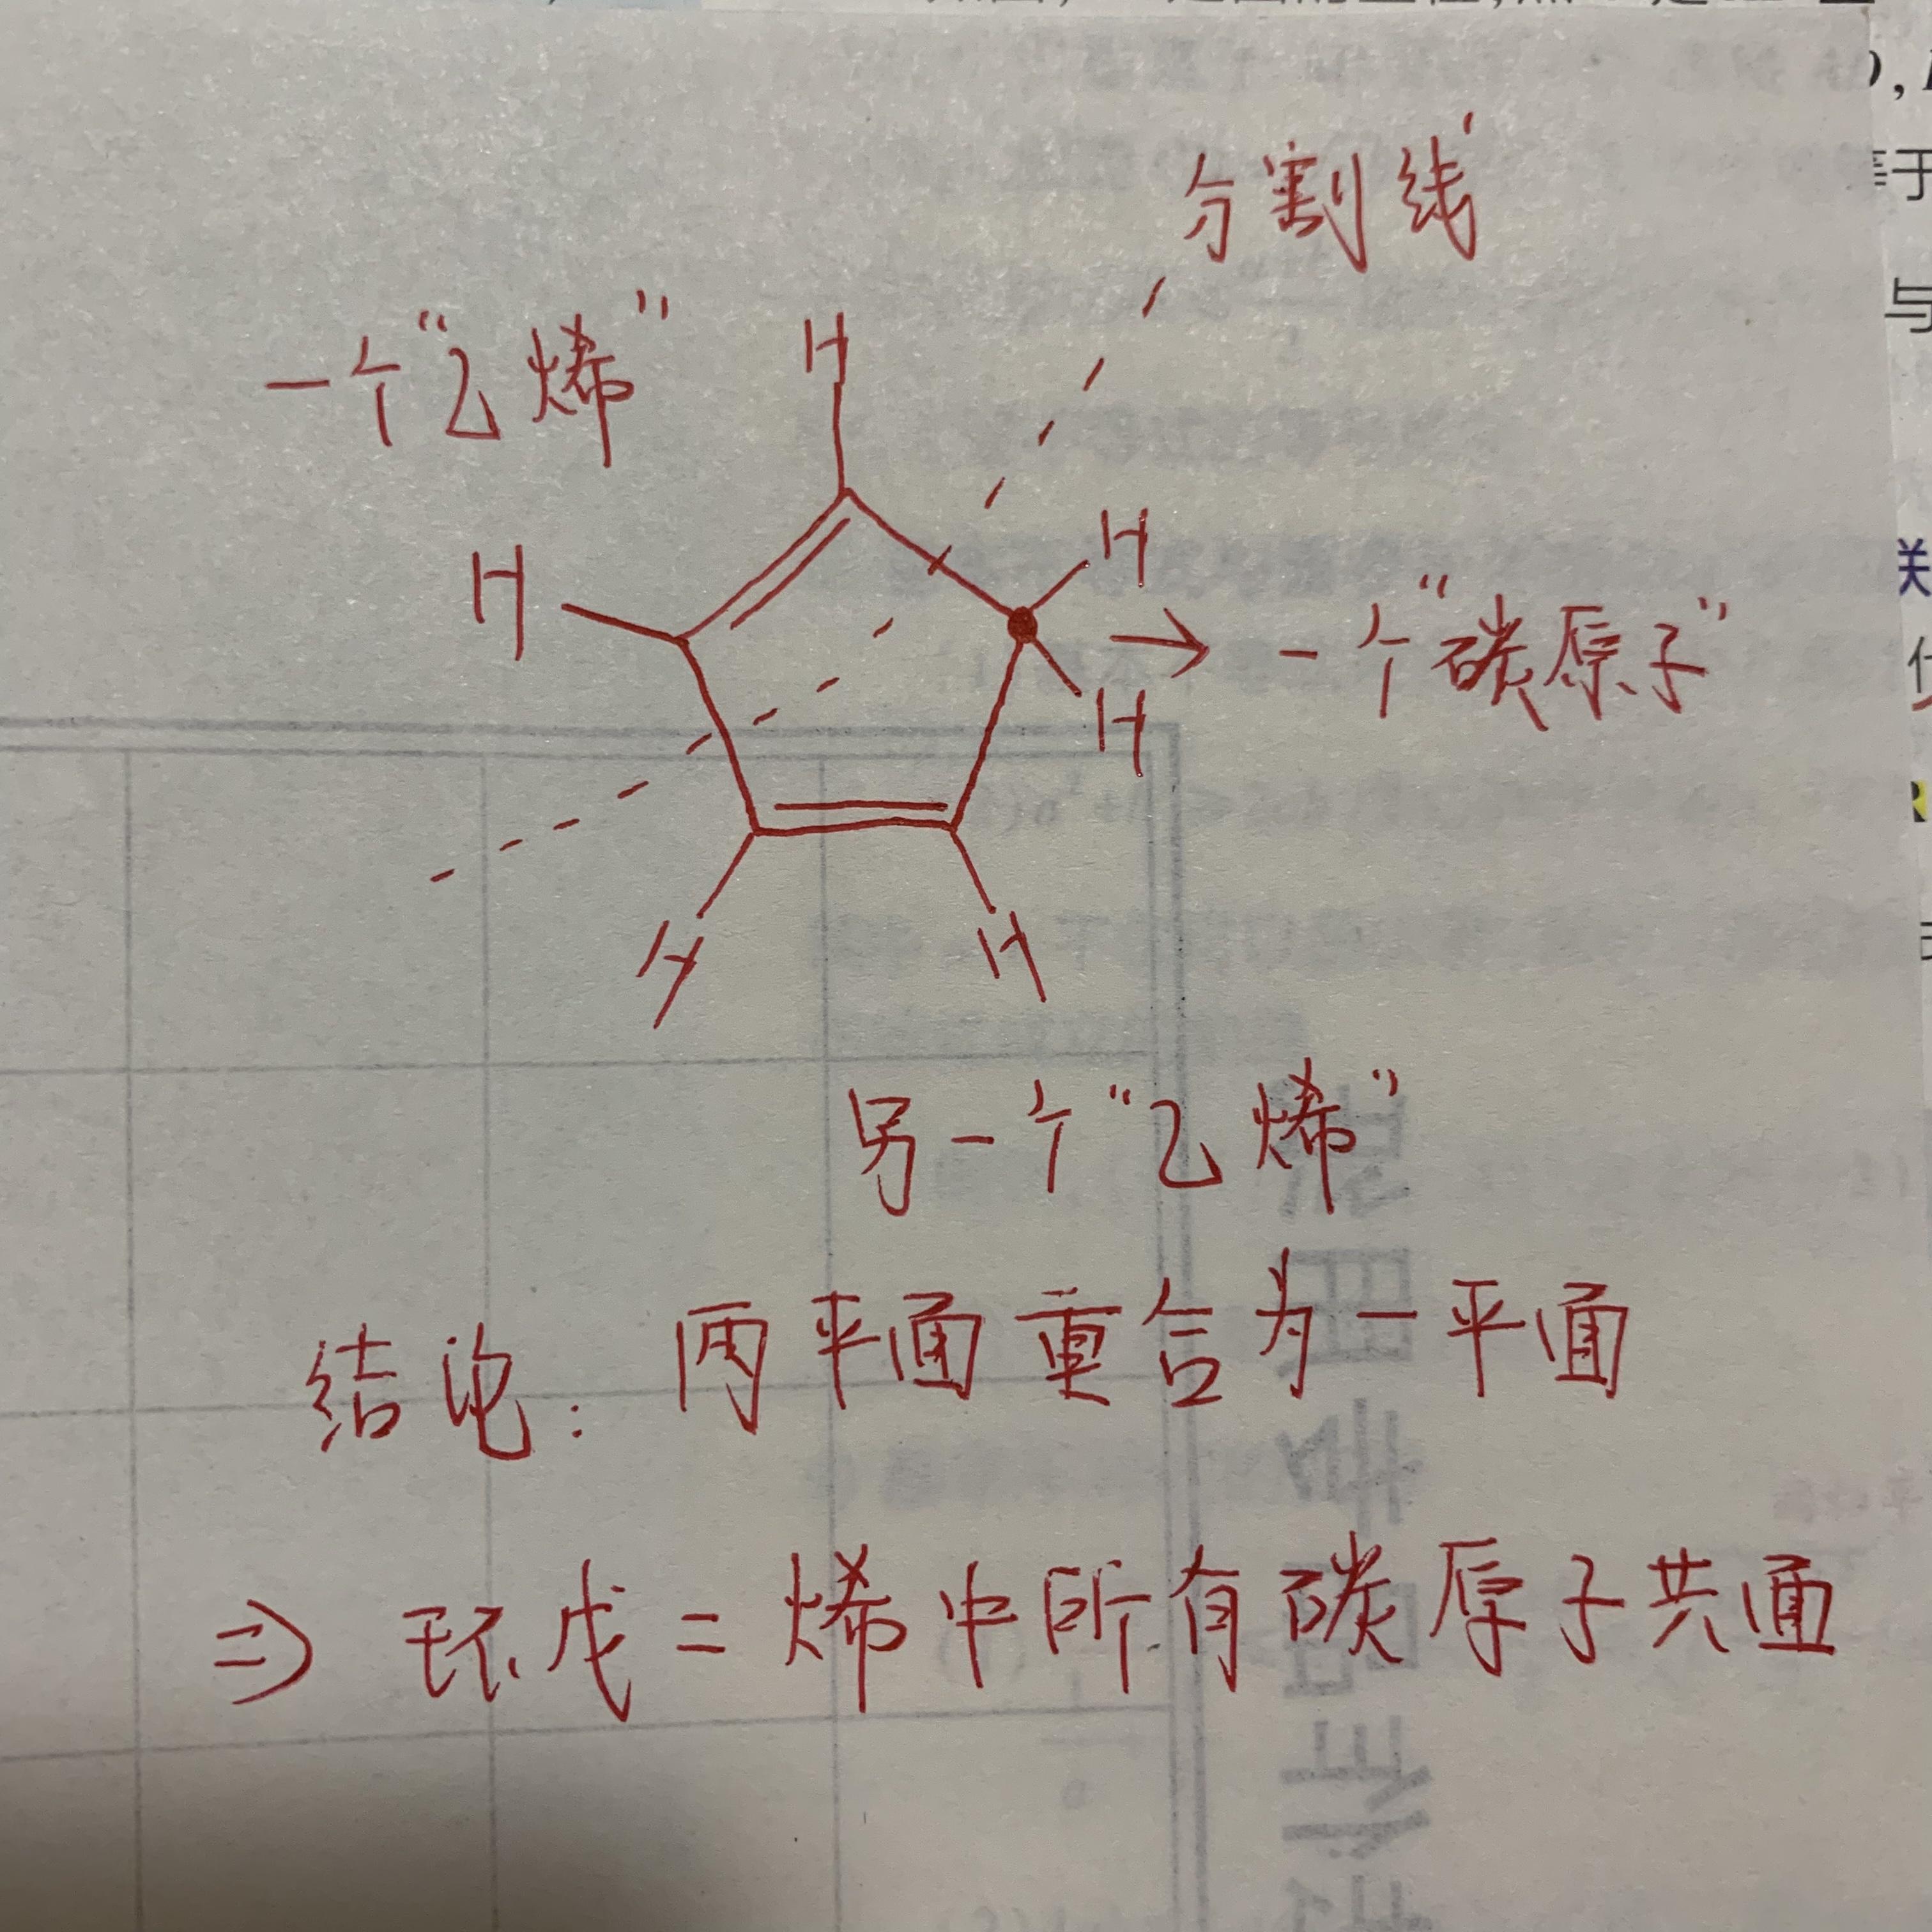 分割线
一个“乙烯”
H
H
H
→ 一个“碳原子”
H
H
H
另一个“乙烯”
结论: 两平面重合为一平面
⇒ 环戊二烯中所有碳原子共面
等于
与
关